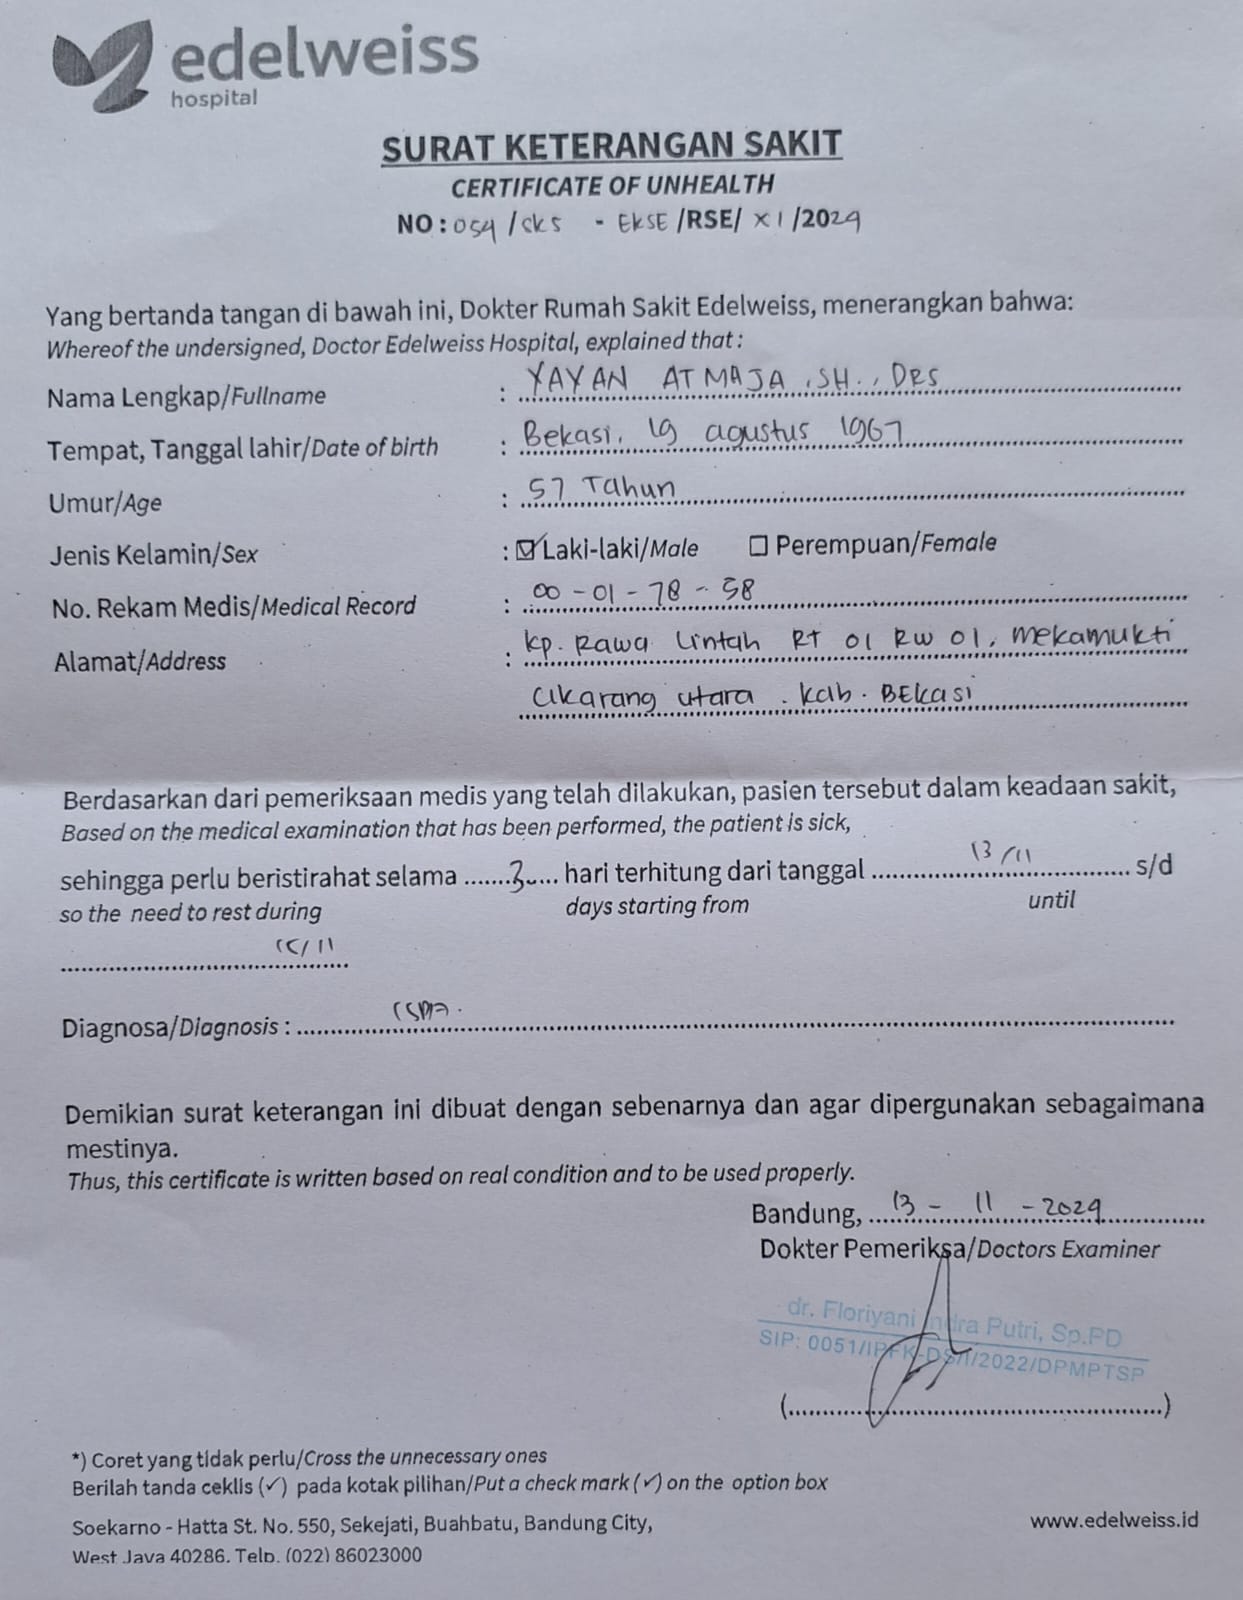 edelweiss
hospital
SURAT KETERANGAN SAKIT
CERTIFICATE OF UNHEALTH
NO : 054 / SKS - EKSE /RSE/ XI /2024
Yang bertanda tangan di bawah ini, Dokter Rumah Sakit Edelweiss, menerangkan bahwa:
Whereof the undersigned, Doctor Edelweiss Hospital, explained that :
Nama Lengkap/Fullname : YAYAN ATMAJA , SH., DRS
Tempat, Tanggal lahir/Date of birth : Bekasi, 19 agustus 1967
Umur/Age : 57 Tahun
Jenis Kelamin/Sex : ☑ Laki-laki/Male ☐ Perempuan/Female
No. Rekam Medis/Medical Record : 00 - 01 - 78 - 58
Alamat/Address : kp. Rawa Lintah RT 01 RW 01, mekamukti
Cikarang utara . kab. BEkasi
Berdasarkan dari pemeriksaan medis yang telah dilakukan, pasien tersebut dalam keadaan sakit,
Based on the medical examination that has been performed, the patient is sick,
sehingga perlu beristirahat selama ....3.... hari terhitung dari tanggal .... 13/11 .... s/d
so the need to rest during days starting from until
15/11
Diagnosa/Diagnosis : ISPA.
Demikian surat keterangan ini dibuat dengan sebenarnya dan agar dipergunakan sebagaimana
mestinya.
Thus, this certificate is written based on real condition and to be used properly.
Bandung, 13 - 11 - 2024
Dokter Pemeriksa/Doctors Examiner
dr. Floriyani Indra Putri, Sp.PD
SIP: 0051/IPFK-DS/I/2022/DPMPTSP
(....................)
*) Coret yang tidak perlu/Cross the unnecessary ones
Berilah tanda ceklis (✓) pada kotak pilihan/Put a check mark (✓) on the option box
Soekarno - Hatta St. No. 550, Sekejati, Buahbatu, Bandung City, www.edelweiss.id
West Java 40286. Telp. (022) 86023000